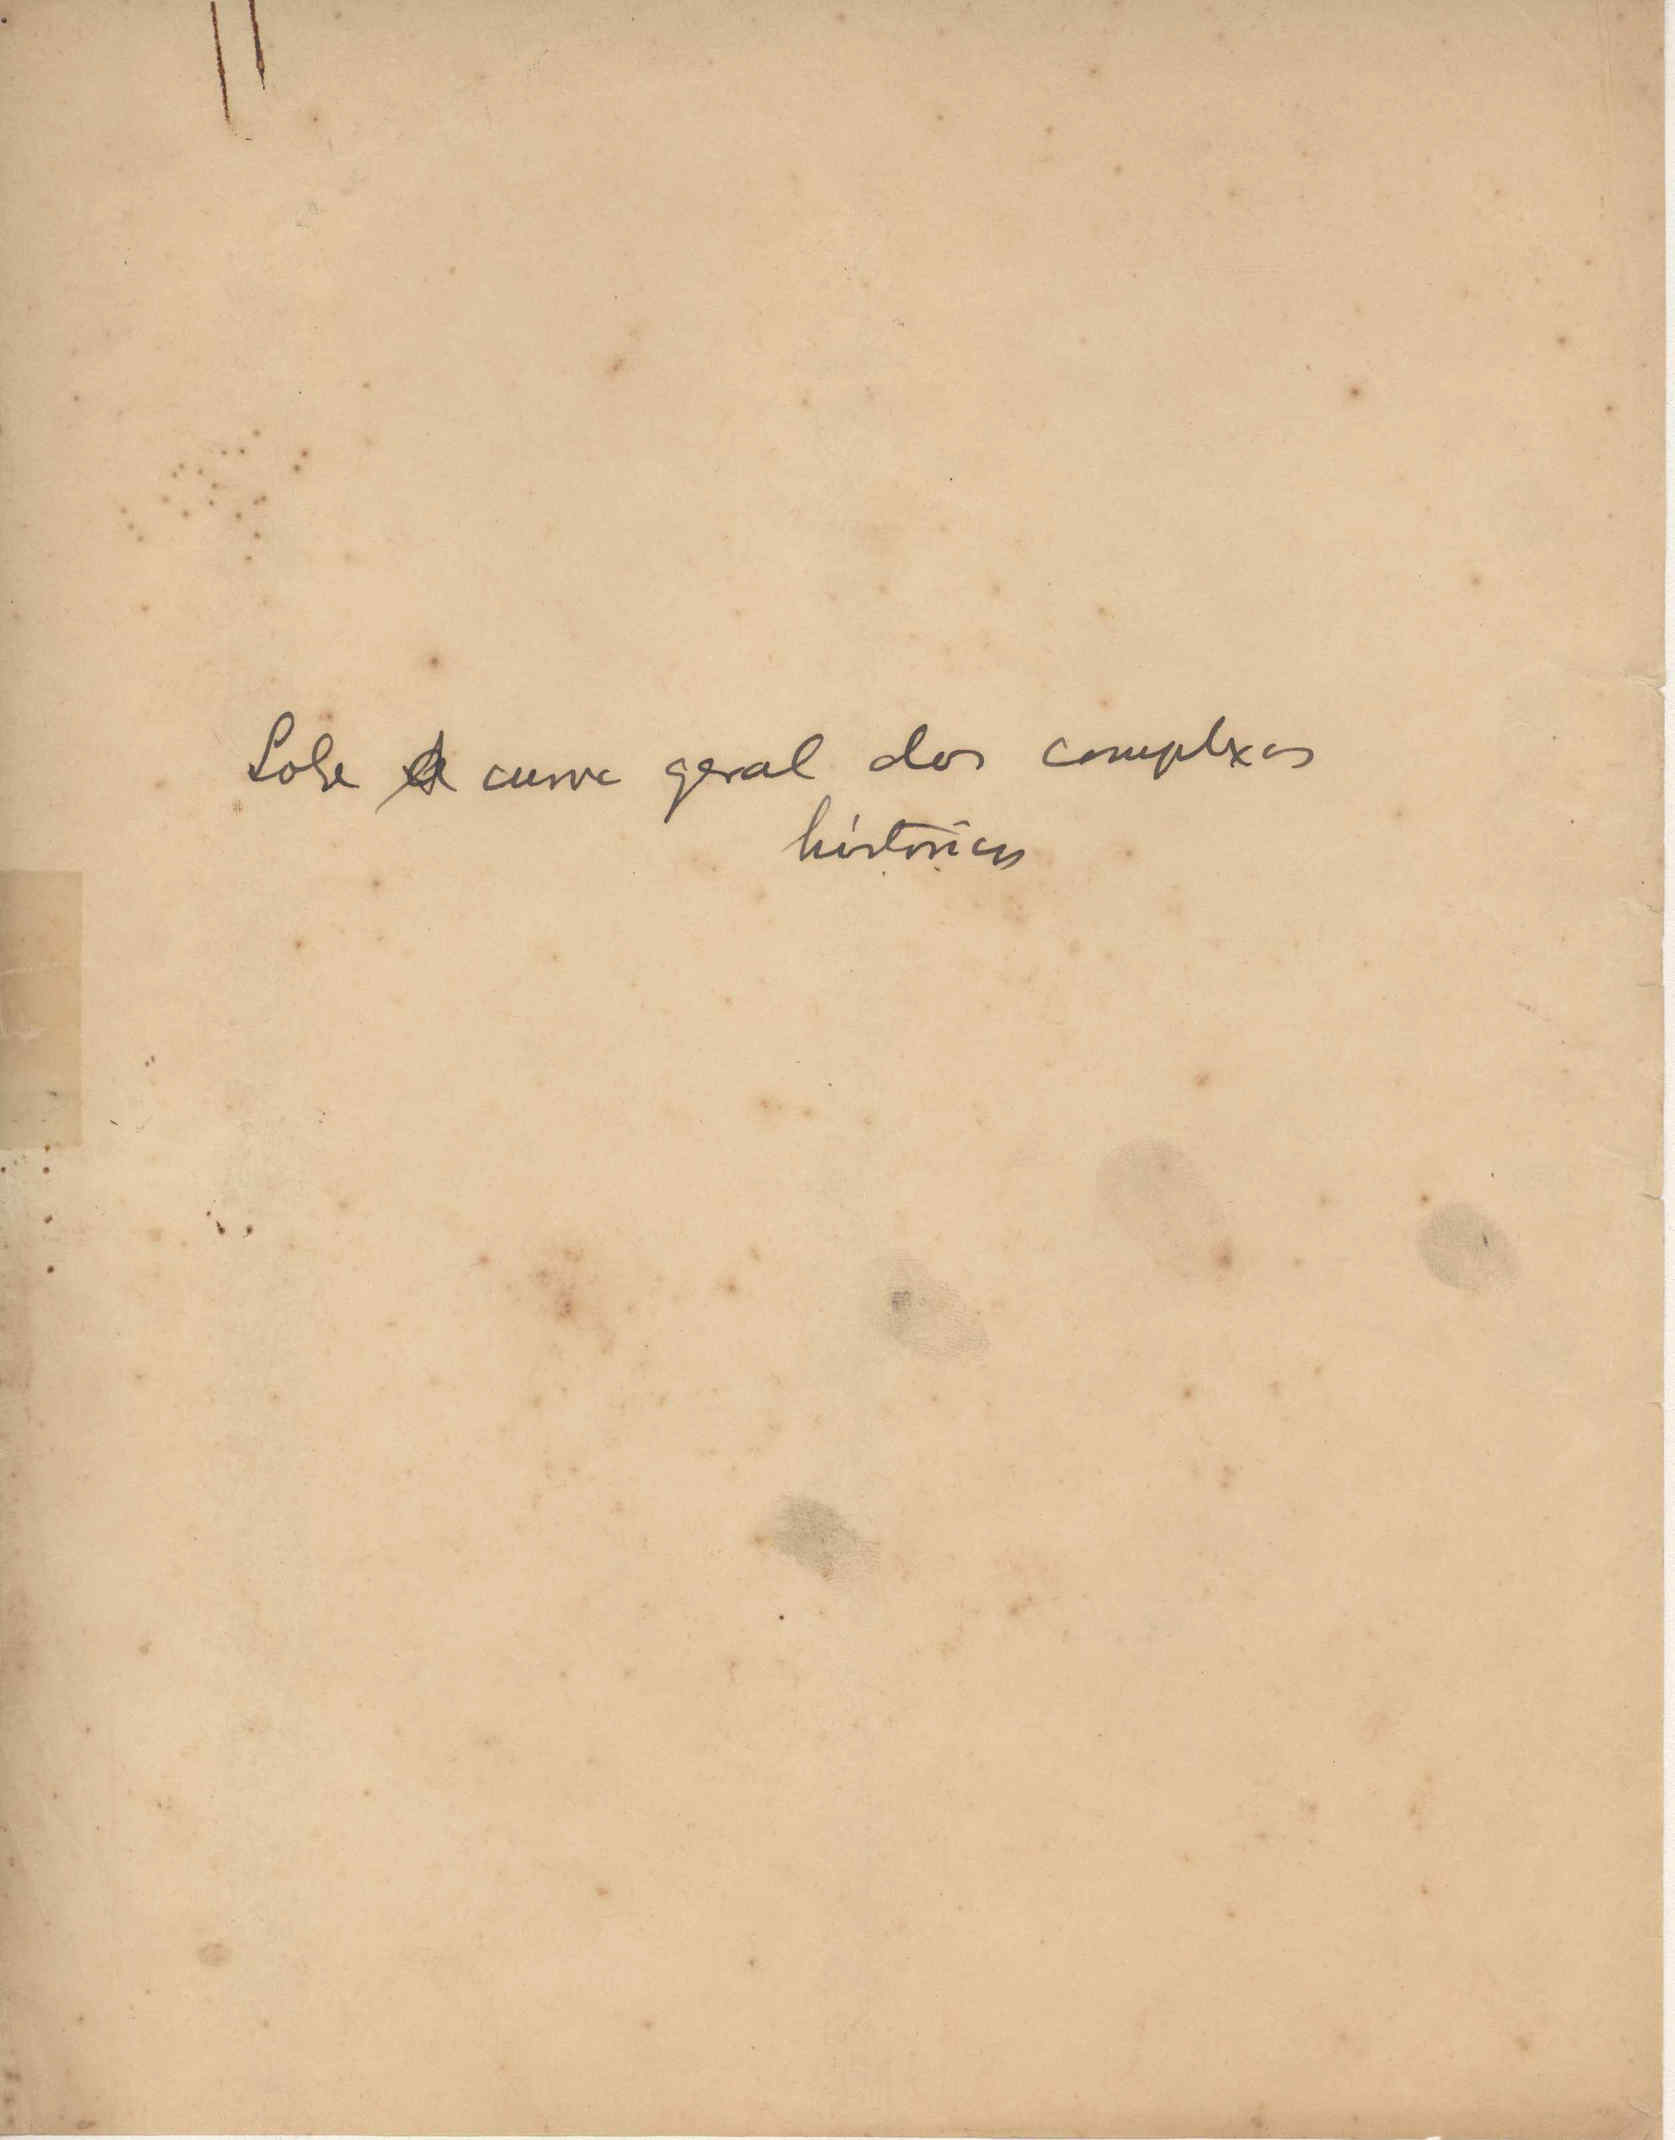 Sobre a curva geral dos complexos
históricos